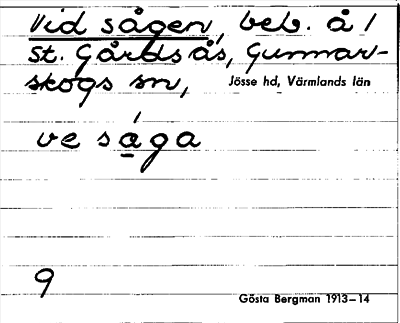 Vid sågen, beb. å 1/
St. Gårdsås, Gunnar-
skogs sn, Jösse hd, Värmlands län
ve sá̱ga
9
Gösta Bergman 1913–14